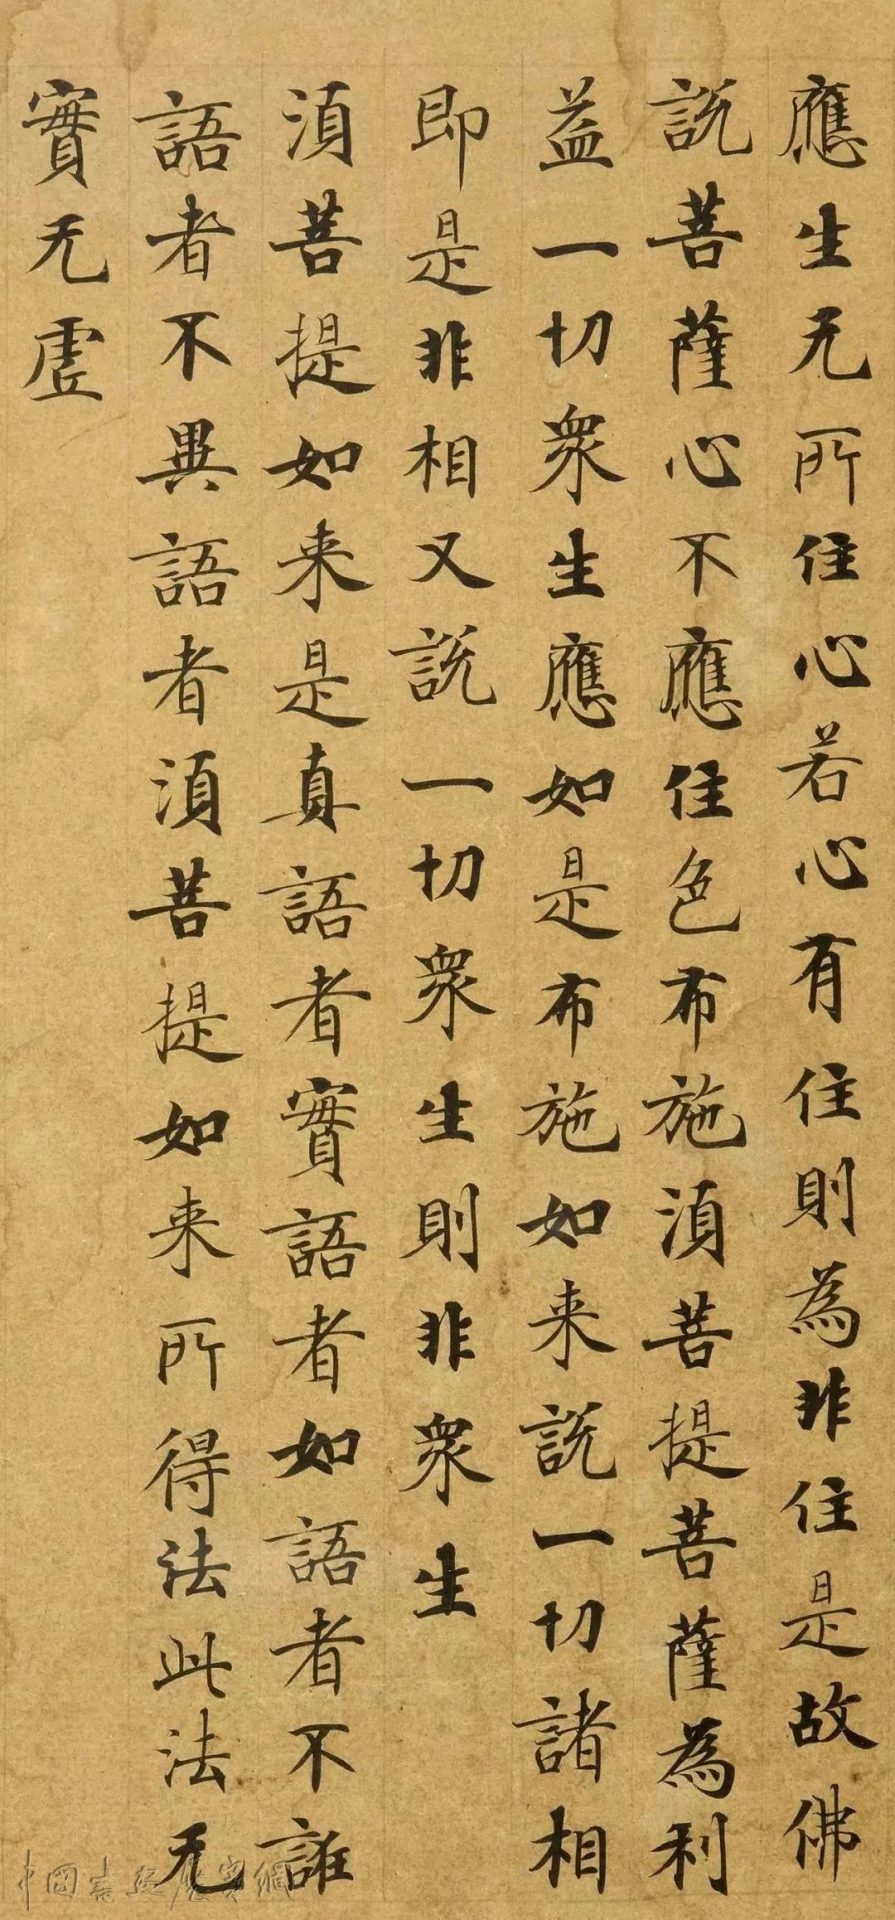 應生无所住心若心有住則為非住是故佛
説菩薩心不應住色布施湏菩提菩薩為利
益一切衆生應如是布施如来説一切諸相
即是非相又説一切衆生則非衆生
湏菩提如来是真語者實語者如語者不誰
語者不異語者湏菩提如来所得法此法无
實无虗
中國書法